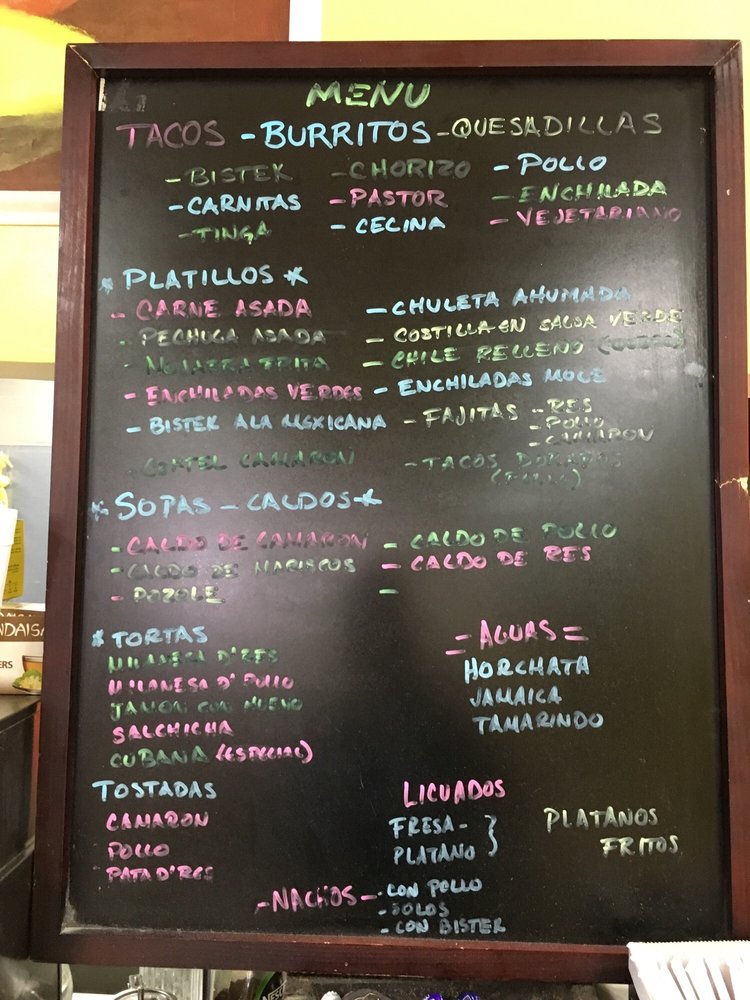 MENU
TACOS - BURRITOS - QUESADILLAS
- BISTEK - CHORIZO - POLLO
- CARNITAS - PASTOR - ENCHILADA
- TINGA - CECINA - VEJETARIANO
* PLATILLOS *
- CARNE ASADA
- PECHUGA ASADA
- MOJARRA FRITA
- ENCHILADAS VERDES
- BISTEK ALA MEXICANA
- COKTEL CAMARON
- CHULETA AHUMADA
- COSTILLA EN SALSA VERDE
- CHILE RELLENO
- ENCHILADAS MOLE
- FAJITAS - RES
- POLLO
- CAMARON
- TACOS DORADOS
(POLLO)
* SOPAS - CALDOS *
- CALDO DE CAMARON
- CALDO DE MARISCOS
- POZOLE
- CALDO DE POLLO
- CALDO DE RES
-
* TORTAS
MILANESA D'RES
MILANESA D'POLLO
JAMON CON HUEVO
SALCHICHA
CUBANA (ESPECIAL)
= AGUAS =
HORCHATA
JAMAICA
TAMARINDO
TOSTADAS
CAMARON
POLLO
PATA D'RES
LICUADOS
FRESA -
PLATANO
PLATANOS
FRITOS
- NACHOS - - CON POLLO
- SOLOS
- CON BISTEK
NDAISA
ERS